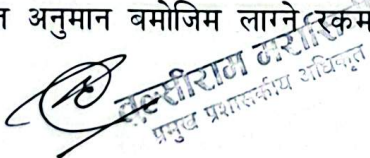 अनुमान बमोजिम लाग्ने रकम
तुल्सीराम
प्रमुख प्रशासकीय अधिकृत